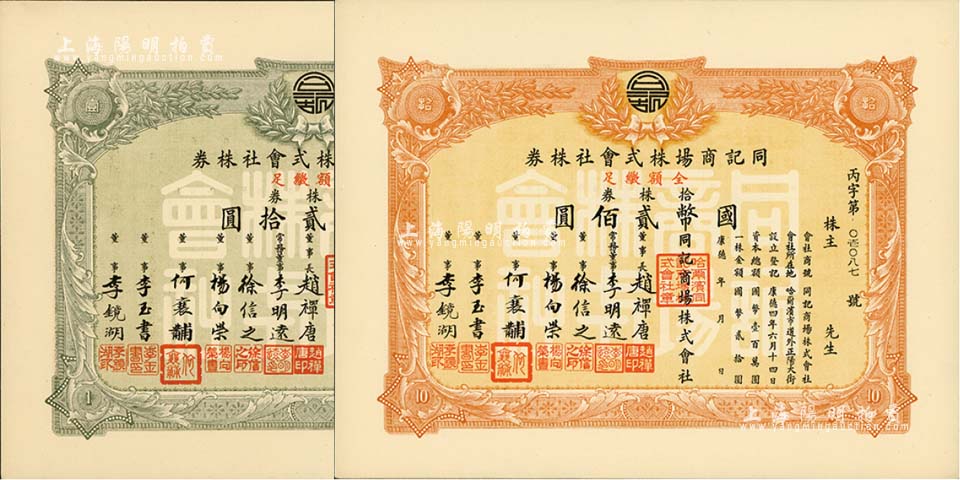 上海陽明拍賣
www.yangmingauction.com
壹
株式會社株券
額繳足
株券
貳拾圓
董事長趙禪唐
常務董事李明遠
董事徐信之
董事楊向榮
董事何襄黼
董事李玉書
董事李鏡湖
1
拾
同記商場株式會社株券
全額繳足
拾株券
國幣貳佰圓
丙字第〇壱〇八七號
株主 先生
會社商號 同記商場株式會社
會社所在地 哈爾濱市道外正陽大街
設立登記 康德四年六月十四日
資本總額 國幣壹百萬圓
一株金額 國幣貳拾圓
康德 年 月 日
同記商場株式會社
董事長趙禪唐
常務董事李明遠
董事徐信之
董事楊向榮
董事何襄黼
董事李玉書
董事李鏡湖
10
10
上海陽明拍賣
www.yangmingauction.com